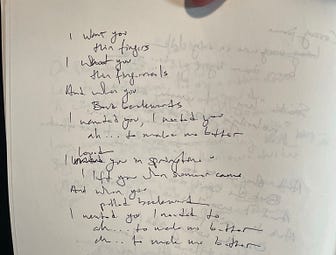 I want you
thin fingers
I want you
thin fingernails
And when you
Bend backwards
I needed you, I needed you
ah... to make me better
loved
I you in springtime
I left you when summer came
And when you
pulled backward
I needed you I needed to
ah... to make me better
ah... to make me better